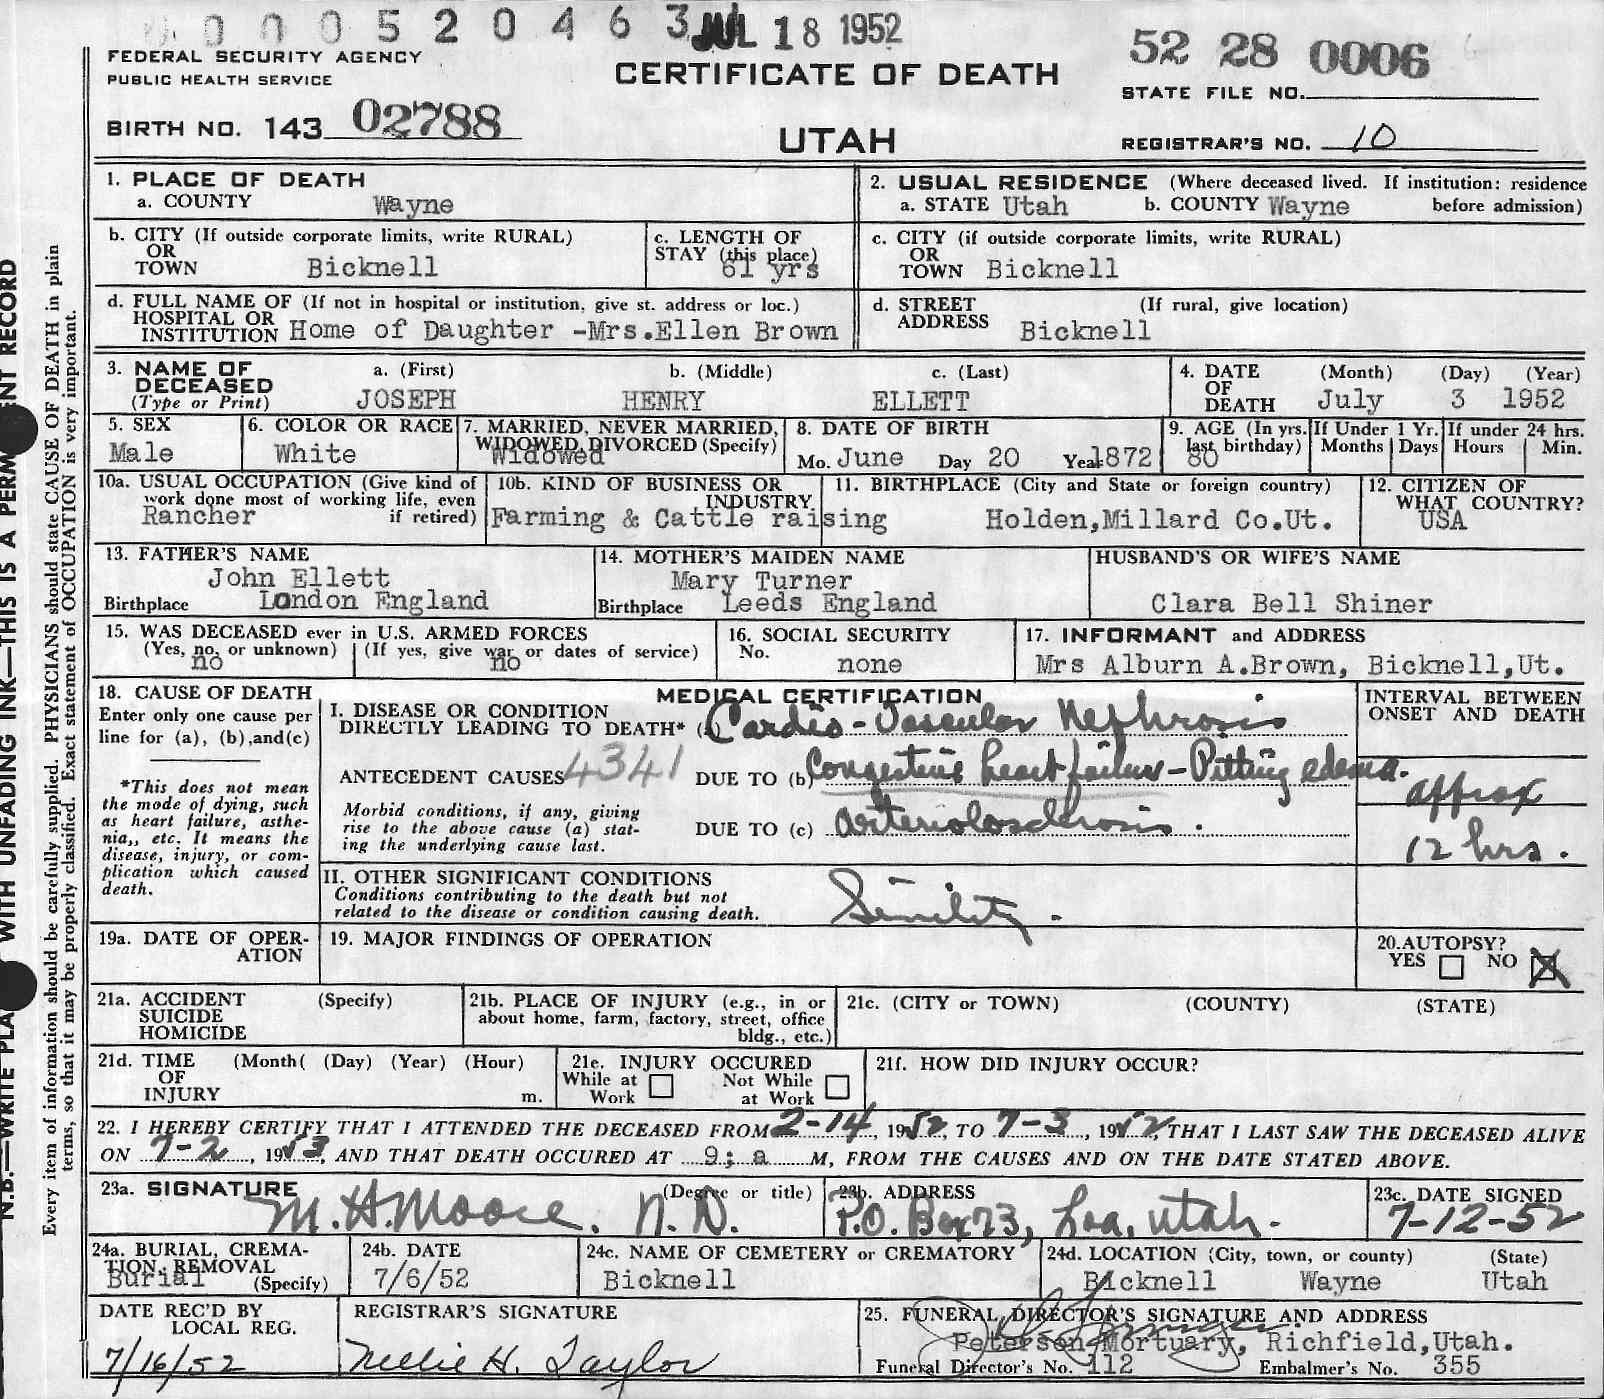 0 0 0 5 2 0 4 6 3 JUL 18 1952
52 28 0006
FEDERAL SECURITY AGENCY
PUBLIC HEALTH SERVICE
CERTIFICATE OF DEATH
STATE FILE NO.
BIRTH NO. 143 02788
UTAH
REGISTRAR'S NO. 10
N.B.—WRITE PLA WITH UNFADING INK—THIS IS A PERM ENT RECORD
Every item of information should be carefully supplied. PHYSICIANS should state CAUSE OF DEATH in plain
terms, so that it may be properly classified. Exact statement of OCCUPATION is very important.
1. PLACE OF DEATH
a. COUNTY Wayne
2. USUAL RESIDENCE (Where deceased lived. If institution: residence
a. STATE Utah b. COUNTY Wayne before admission)
b. CITY (If outside corporate limits, write RURAL)
OR
TOWN Bicknell
c. LENGTH OF
STAY (this place)
61 yrs
c. CITY (if outside corporate limits, write RURAL)
OR
TOWN Bicknell
d. FULL NAME OF (If not in hospital or institution, give st. address or loc.)
HOSPITAL OR
INSTITUTION Home of Daughter -Mrs.Ellen Brown
d. STREET (If rural, give location)
ADDRESS Bicknell
3. NAME OF
DECEASED
(Type or Print)
a. (First) b. (Middle) c. (Last)
JOSEPH HENRY ELLETT
4. DATE (Month) (Day) (Year)
OF
DEATH July 3 1952
5. SEX
Male
6. COLOR OR RACE
White
7. MARRIED, NEVER MARRIED,
WIDOWED, DIVORCED (Specify)
Widowed
8. DATE OF BIRTH
Mo. June Day 20 Year 1872
9. AGE (In yrs.
last birthday)
80
If Under 1 Yr.
Months Days
If under 24 hrs.
Hours Min.
10a. USUAL OCCUPATION (Give kind of
work done most of working life, even
Rancher if retired)
10b. KIND OF BUSINESS OR
INDUSTRY
Farming & Cattle raising
11. BIRTHPLACE (City and State or foreign country)
Holden,Millard Co.Ut.
12. CITIZEN OF
WHAT COUNTRY?
USA
13. FATHER'S NAME
John Ellett
Birthplace London England
14. MOTHER'S MAIDEN NAME
Mary Turner
Birthplace Leeds England
HUSBAND'S OR WIFE'S NAME
Clara Bell Shiner
15. WAS DECEASED ever in U.S. ARMED FORCES
(Yes, no, or unknown) (If yes, give war or dates of service)
no no
16. SOCIAL SECURITY
No.
none
17. INFORMANT and ADDRESS
Mrs Alburn A.Brown, Bicknell,Ut.
18. CAUSE OF DEATH
Enter only one cause per
line for (a), (b),and(c)
*This does not mean
the mode of dying, such
as heart failure, asthe-
nia,, etc. It means the
disease, injury, or com-
plication which caused
death.
MEDICAL CERTIFICATION
I. DISEASE OR CONDITION
DIRECTLY LEADING TO DEATH* (a) Cardio-Vascular Nephrosis
ANTECEDENT CAUSES 4341 DUE TO (b) Congestive heart failure - Pitting edema.
Morbid conditions, if any, giving
rise to the above cause (a) stat-
ing the underlying cause last.
DUE TO (c) Arteriolosclerosis.
II. OTHER SIGNIFICANT CONDITIONS
Conditions contributing to the death but not
related to the disease or condition causing death.
Senility.
INTERVAL BETWEEN
ONSET AND DEATH
approx
12 hrs.
19a. DATE OF OPER-
ATION
19. MAJOR FINDINGS OF OPERATION
20.AUTOPSY?
YES NO X
21a. ACCIDENT (Specify)
SUICIDE
HOMICIDE
21b. PLACE OF INJURY (e.g., in or
about home, farm, factory, street, office
bldg., etc.)
21c. (CITY or TOWN) (COUNTY) (STATE)
21d. TIME (Month( (Day) (Year) (Hour)
OF
INJURY m.
21e. INJURY OCCURED
While at Not While
Work at Work
21f. HOW DID INJURY OCCUR?
22. I HEREBY CERTIFY THAT I ATTENDED THE DECEASED FROM 2-14, 1952, TO 7-3, 1952, THAT I LAST SAW THE DECEASED ALIVE
ON 7-2, 1953, AND THAT DEATH OCCURED AT 9: a M, FROM THE CAUSES AND ON THE DATE STATED ABOVE.
23a. SIGNATURE (Degree or title)
M.H.Moore. N.D.
23b. ADDRESS
P.O. Box 73, Loa, Utah.
23c. DATE SIGNED
7-12-52
24a. BURIAL, CREMA-
TION, REMOVAL
Burial (Specify)
24b. DATE
7/6/52
24c. NAME OF CEMETERY or CREMATORY
Bicknell
24d. LOCATION (City, town, or county) (State)
Bicknell Wayne Utah
DATE REC'D BY
LOCAL REG.
7/16/52
REGISTRAR'S SIGNATURE
Nellie H. Taylor
25. FUNERAL DIRECTOR'S SIGNATURE AND ADDRESS
Peterson Mortuary, Richfield,Utah.
Funeral Director's No. 112 Embalmer's No. 355